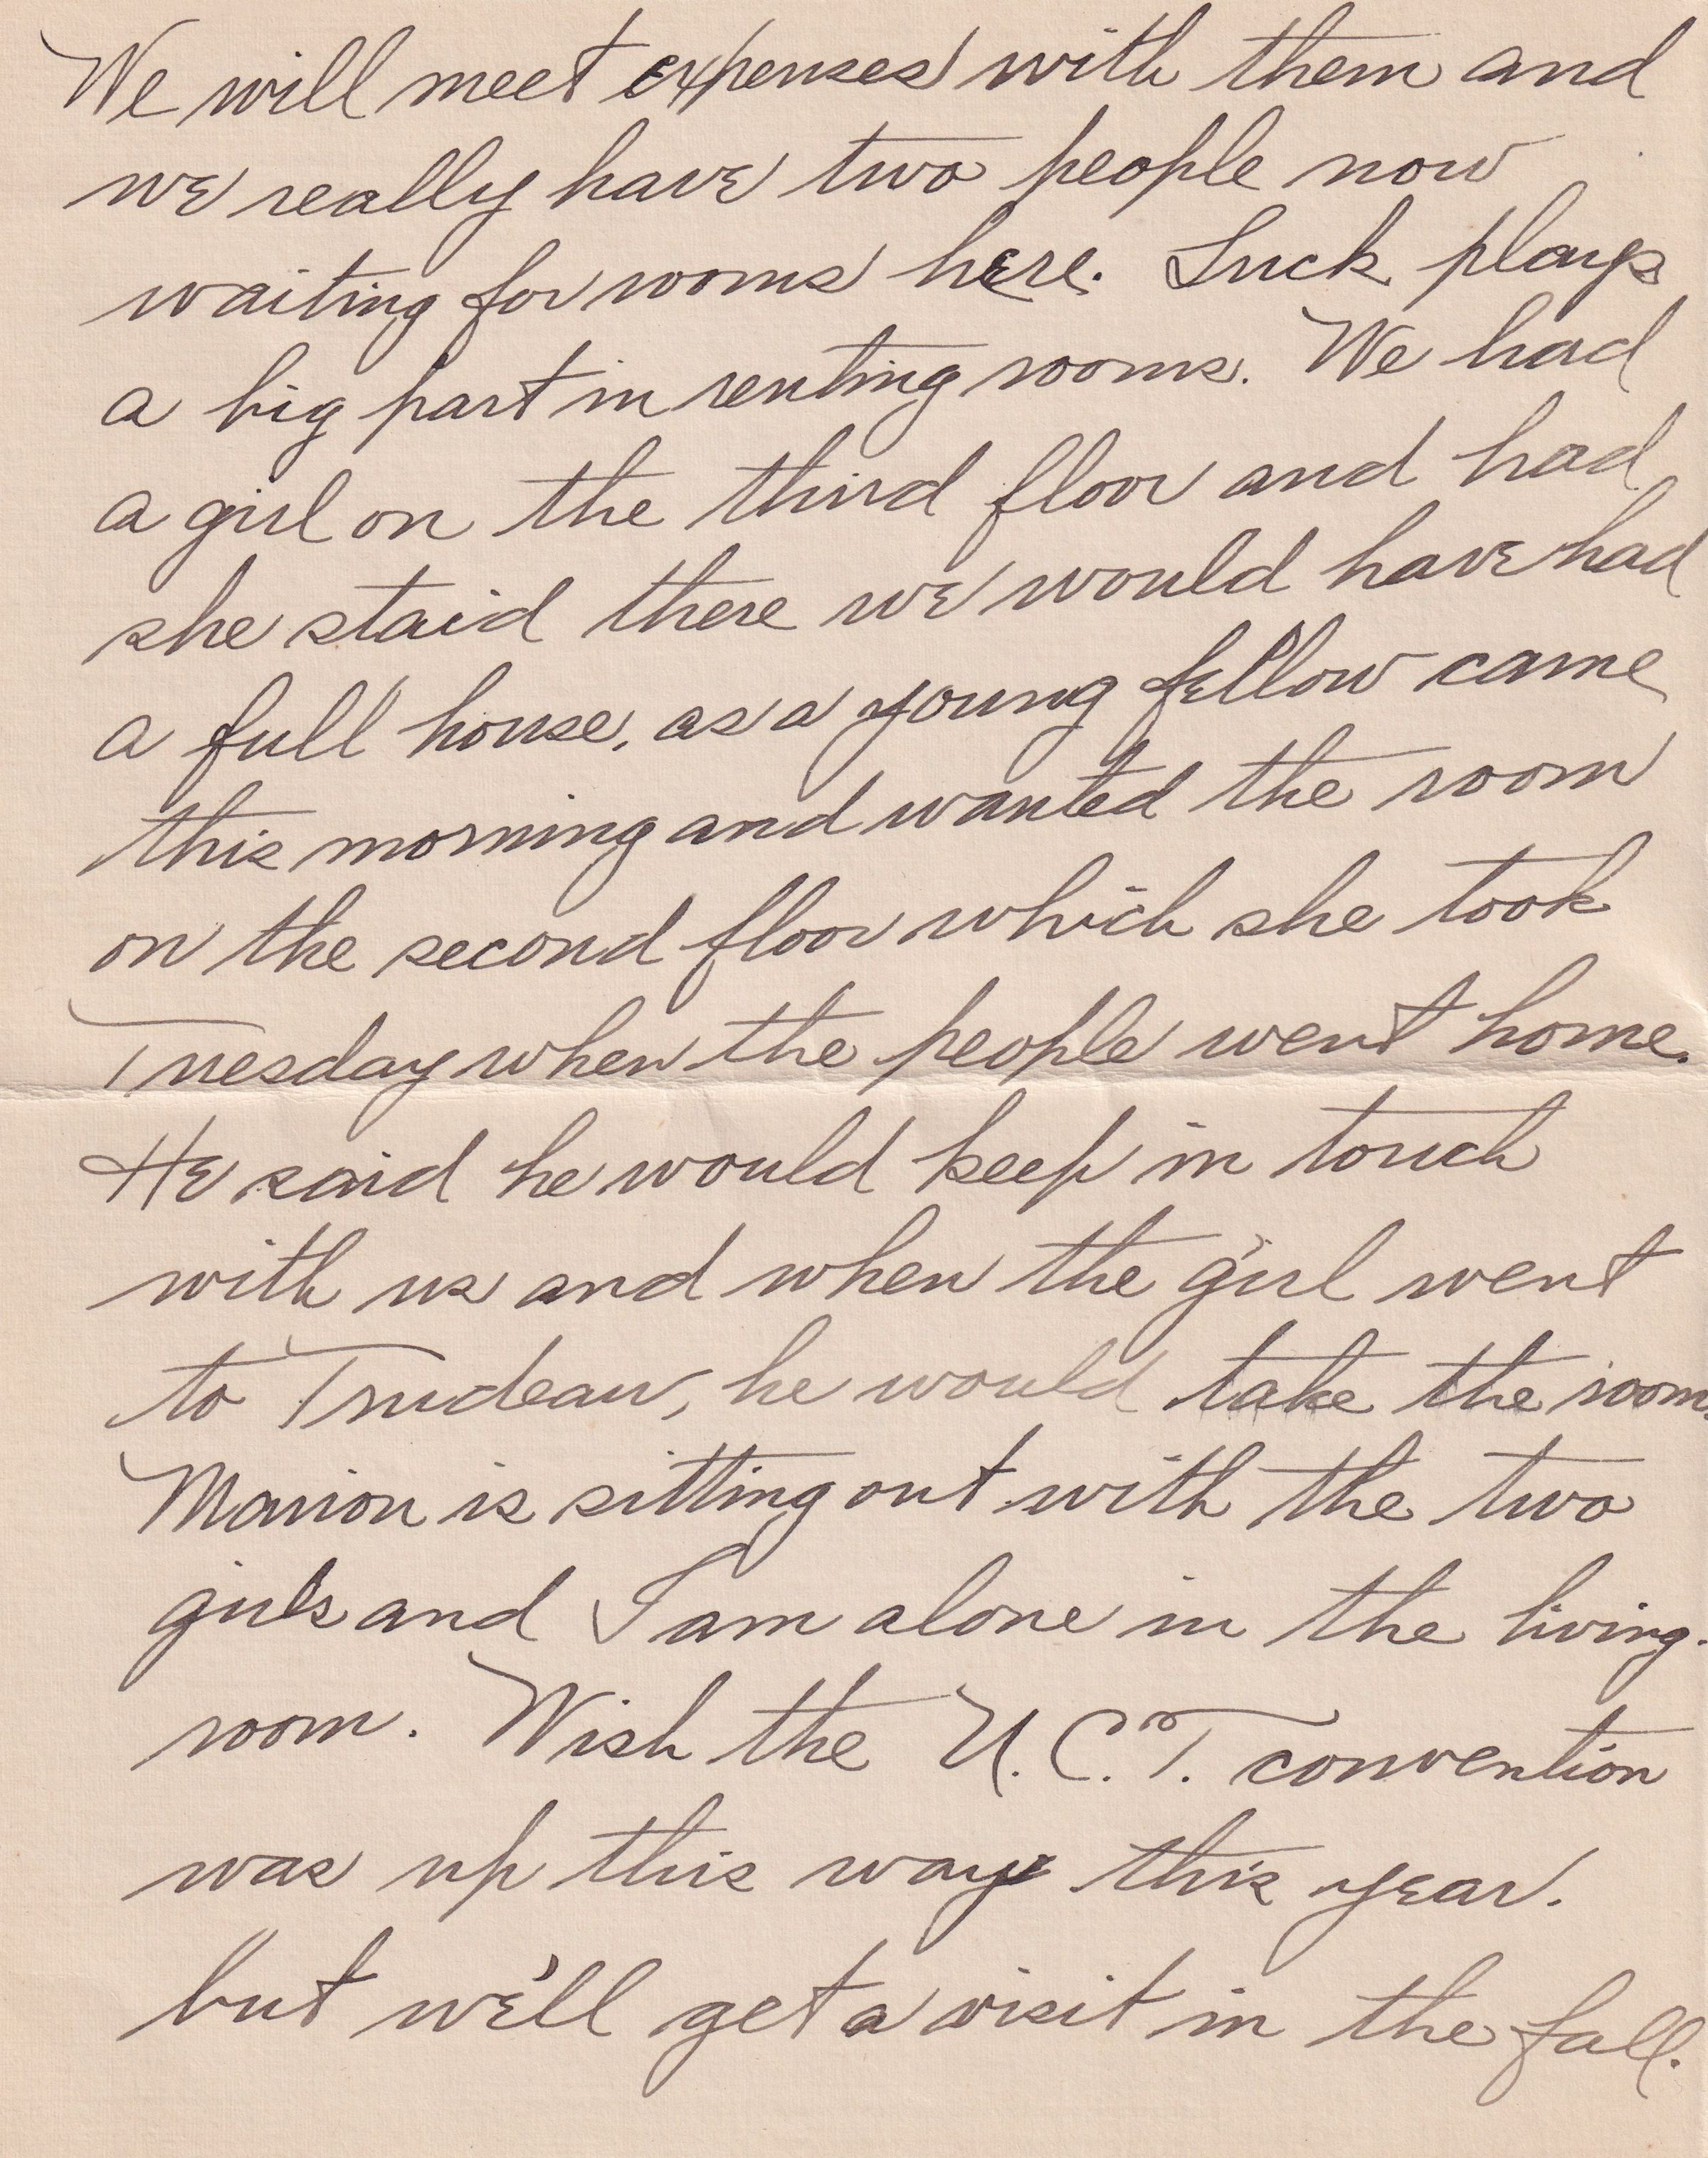 We will meet expenses with them and
we really have two people now
waiting for rooms here. Luck plays
a big part in renting rooms. We had
a girl on the third floor and had
she staid there we would have had
a full house, as a young fellow came
this morning and wanted the room
on the second floor which she took
Tuesday when the people went home.
He said he would keep in touch
with us and when the girl went
to Trudeau, he would take the room.
Marion is sitting out with the two
girls and I am alone in the living-
room. Wish the U.C.T. convention
was up this way this year.
but we'll get a visit in the fall.